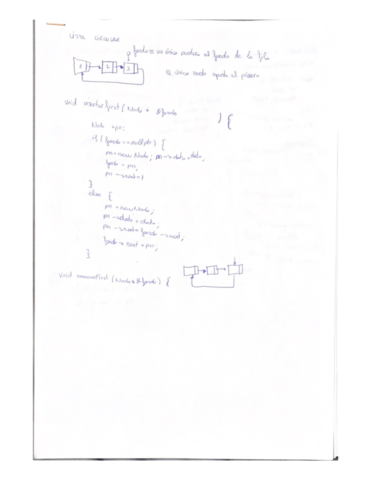 Lista circular
fondo es un único puntero al fondo de la fila
1 2 3
El único nodo apunta al primero
void insertarfirst (Nodo * &fondo ) {
Nodo *pn;
if (fondo == nullptr) {
pn = new Nodo; pn->dato = dato;
fondo = pn;
pn->next =
}
else {
pn = new Nodo;
pn->dato = dato;
pn->next = fondo->next;
fondo->next = pn;
}
void removefirst (Nodo * &fondo) {